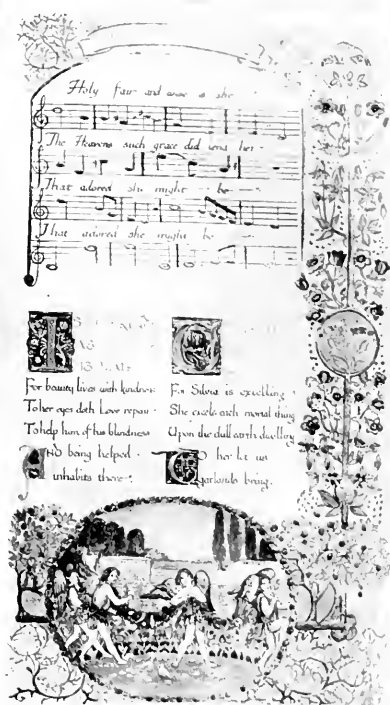 Holy fair and wise is she
The Heavens such grace did lend her
That adored she might be
That adored she might be
I
For beauty lives with kindness
To her eyes doth Love repair
To help him of his blindness
AND being helped
inhabits there
For Silvia is excelling
She excels each mortal thing
Upon the dull earth dwelling
To her let us
Garlands bring.